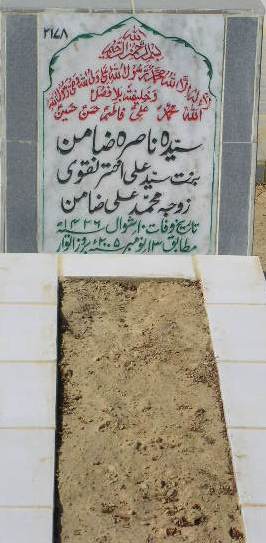 ۲۱۷۸
بسم اللہ الرحمن الرحیم
لا الہ الا اللہ محمد رسول اللہ علی ولی اللہ وصی رسول اللہ
و خلیفتہ بلا فصل
اللہ محمد علی فاطمہ حسن حسین
سیدہ ناصرہ ضامن
بنت سید علی اختر نقوی
زوجہ محمد علی ضامن
تاریخ وفات ۱۰ شوال ۱۴۲۶ھ
مطابق ۱۳ نومبر ۲۰۰۵ء بروز اتوار